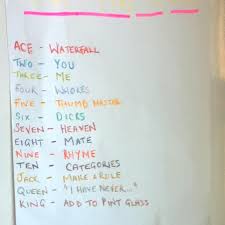 ACE - WATERFALL
TWO - YOU
THREE - ME
FOUR - WHORES
FIVE - THUMB MASTER
SIX - DICKS
SEVEN - HEAVEN
EIGHT - MATE
NINE - RHYME
TEN - CATEGORIES
JACK - MAKE A RULE
QUEEN - "I HAVE NEVER..."
KING - ADD TO PINT GLASS